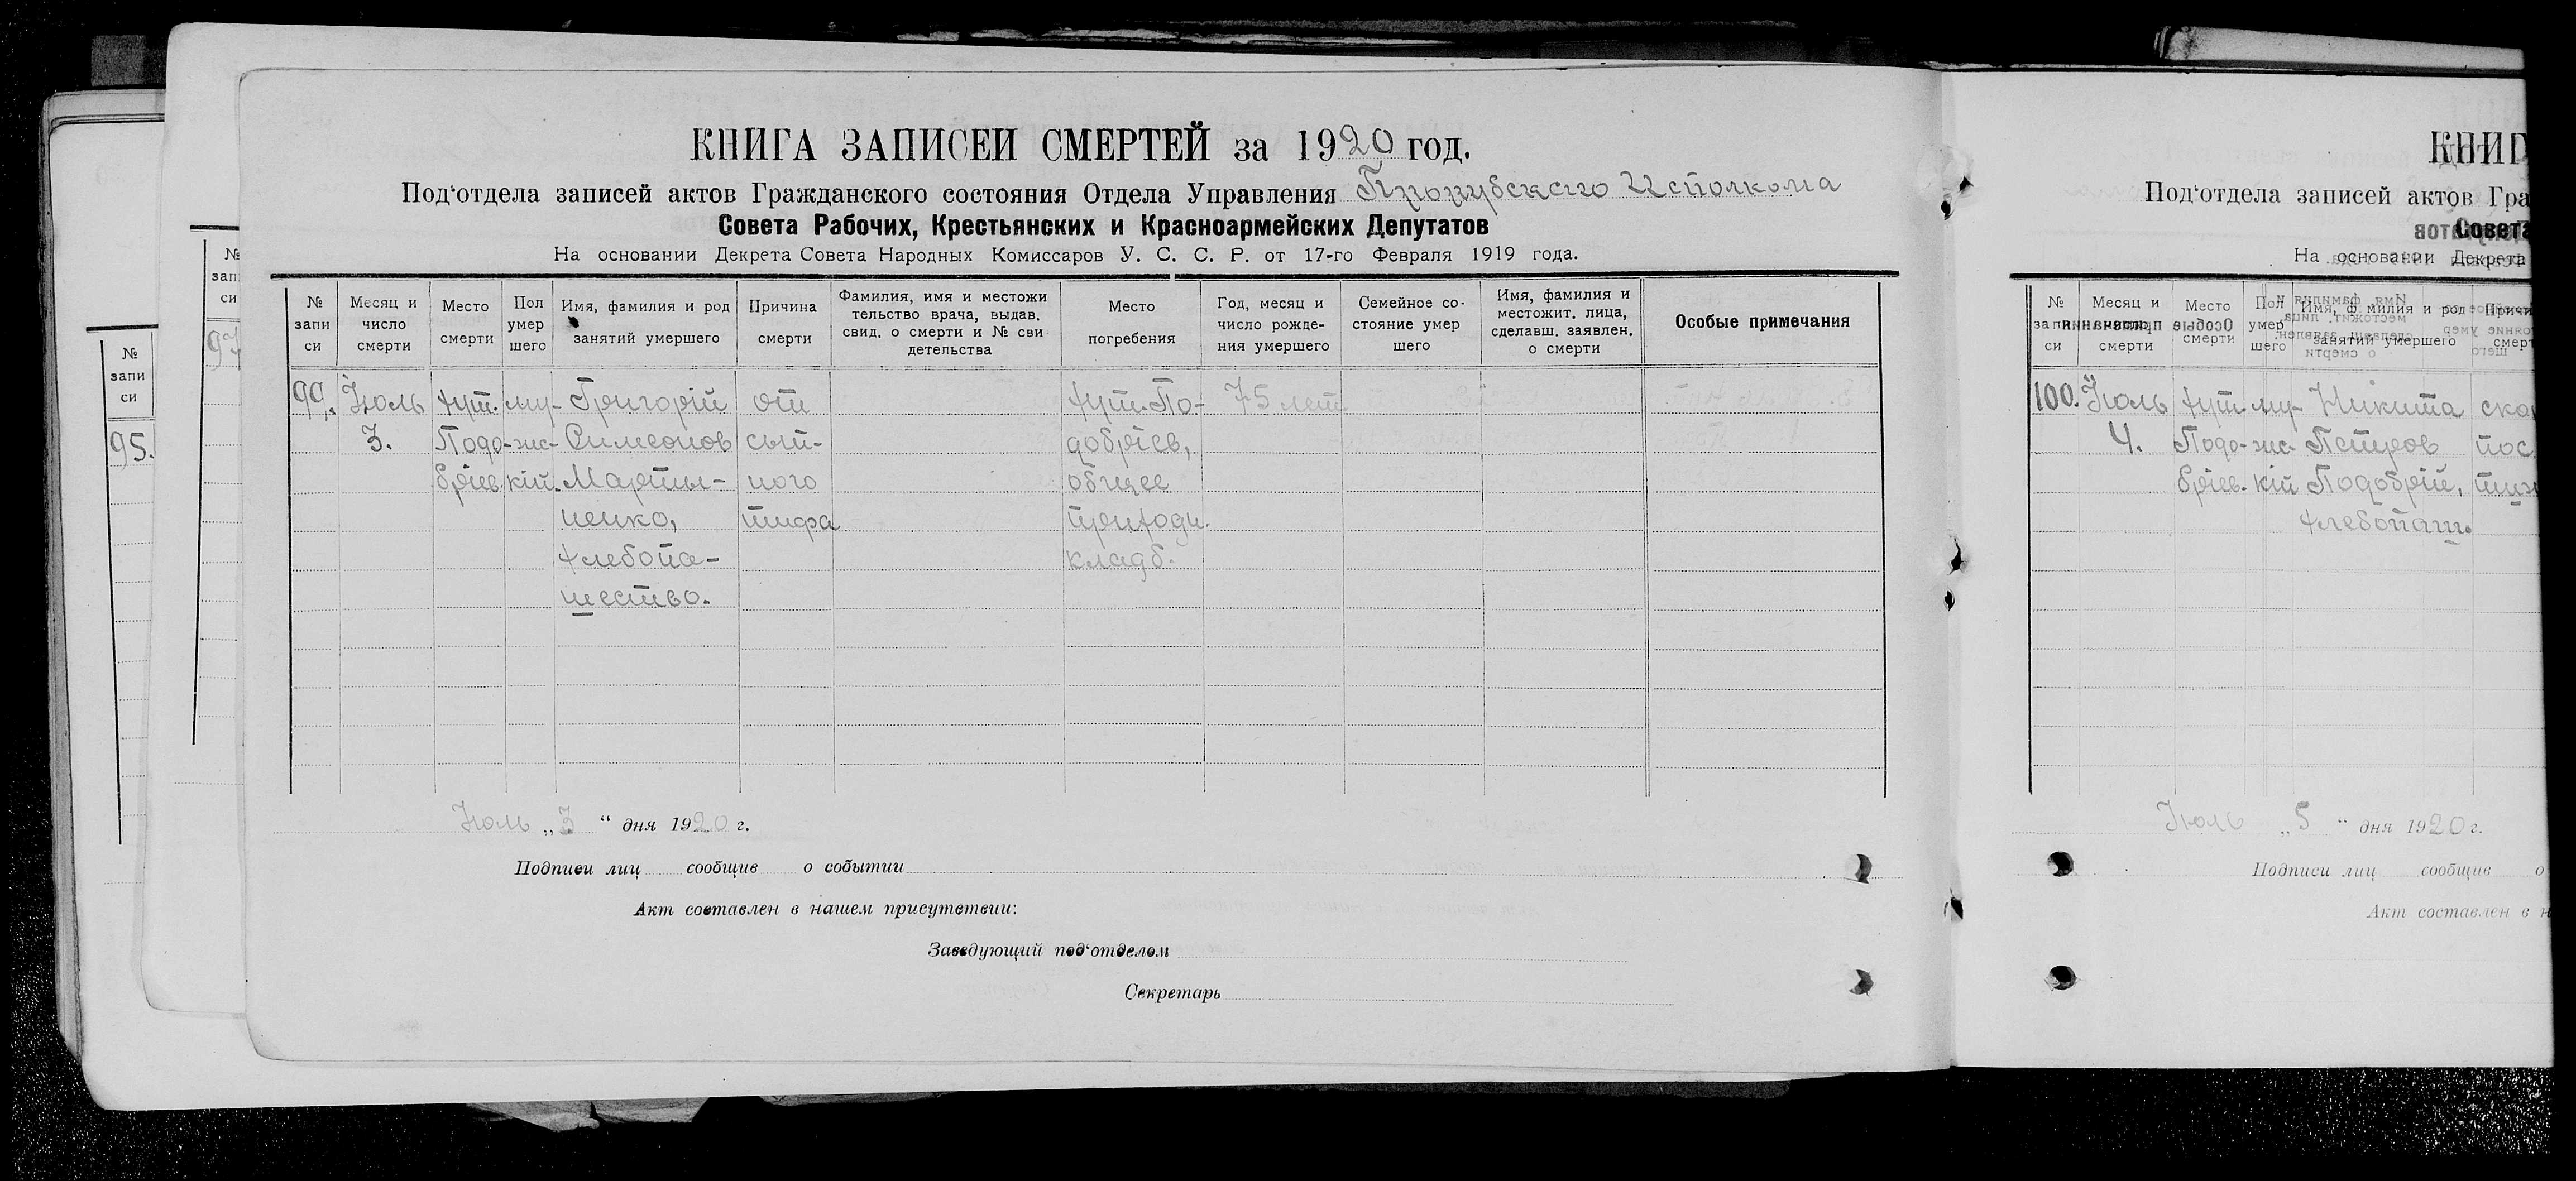 КНИГА ЗАПИСЕИ СМЕРТЕЙ за 1920 год.
Под‘отдела записей актов Гражданского состояния Отдела Управления Исполкома
Совета Рабочих, Крестьянских и Красноармейских Депутатов
На основании Декрета Совета Народных Комиссаров У. С. С. Р. от 17-го Февраля 1919 года.
№ запи си
Месяц и число смерти
Место смерти
Пол умер шего
Имя, фамилия и род занятий умершего
Причина смерти
Фамилия, имя и местожи тельство врача, выдав. свид. о смерти и № сви детельства
Место погребения
Год, месяц и число рожде- ния умершего
Семейное со- стояние умер шего
Имя, фамилия и местожит. лица, сделавш. заявлен. о смерти
Особые примечания
99. Июль хут. му- Григорій от хут. По- 75 лет
3. Подо- жс- Симеонов сып- добріев,
бріев. кій. Марты- ного общее
ненко, тифа приходск.
хлебопа- кладб.
шество.
Июль „3“ дня 1920 г.
Подписи лиц сообщив о событии
Акт составлен в нашем присутствии:
Заведующий под‘отделом
Секретарь
№ запи си
97
№ запи си
95.
КНИГ
Под‘отдела записей актов Гра
Совета
На основании Декрета
№ запи си
Месяц и число смерти
Место смерти
Пол умер шего
Имя, ф милия и род занятий умершего
Причи смерт
100. Июль хут. му- Никита
4. Подо- жс- Петров
бріев. кій Подобрій,
хлебопаш.
Июль „5“ дня 1920 г.
Подписи лиц сообщив о
Акт составлен в н